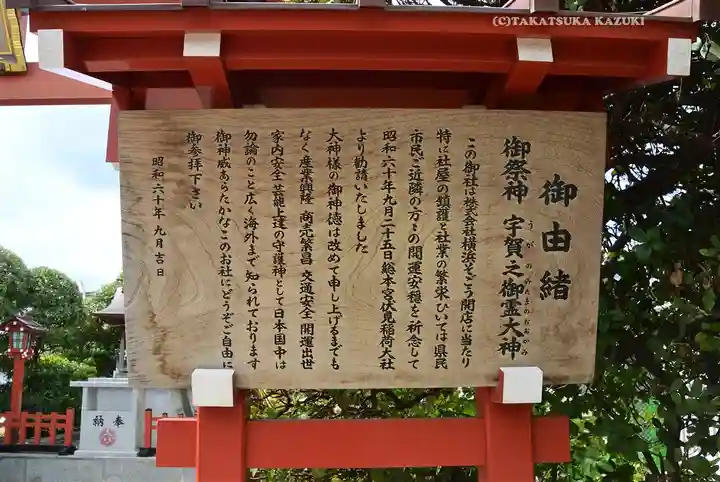 (C)TAKATSUKA KAZUKI
御由緒
御祭神 宇賀之御霊大神
うがのみたまのおおかみ
この御社は株式会社横浜そごう開店に当たり
特に社屋の鎮護と社業の繁栄ひいては県民
市民ご近隣の方々の開運安穏を祈念して
昭和六十年九月二十五日総本宮伏見稲荷大社
より勧請いたしました
大神様の御神徳は改めて申し上げるまでも
なく産業興隆 商売繁昌 交通安全 開運出世
家内安全 芸能上達の守護神として日本国中は
勿論のこと広く海外まで知られております
御神威あらたかなこのお社にどうぞご自由に
御参拝下さい
昭和六十年 九月吉日
奉納